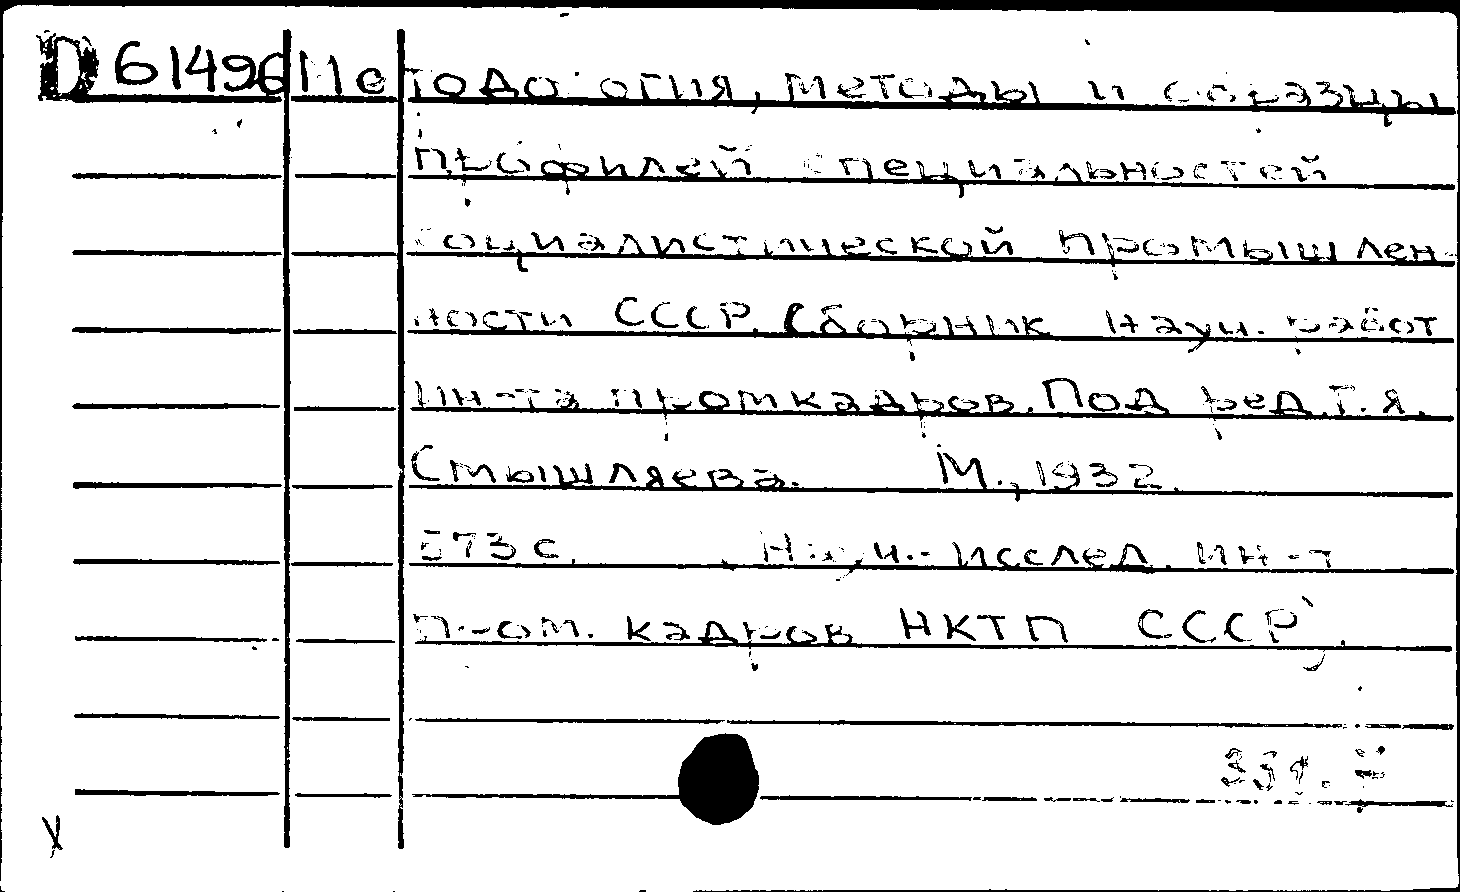 D 61496 Методология, методы и образцы
профилей специальностей
социалистической промышлен-
ности СССР. Сборник науч. работ
Ин-та промкадров. Под ред. Т.Я.
Смышляева. М., 1932.
573 с. Науч.-исслед. ин-т
пром. кадров НКТП СССР.